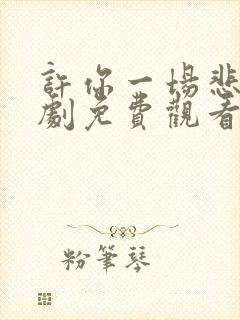 許你一場悲
劇免費觀看
粉筆琴